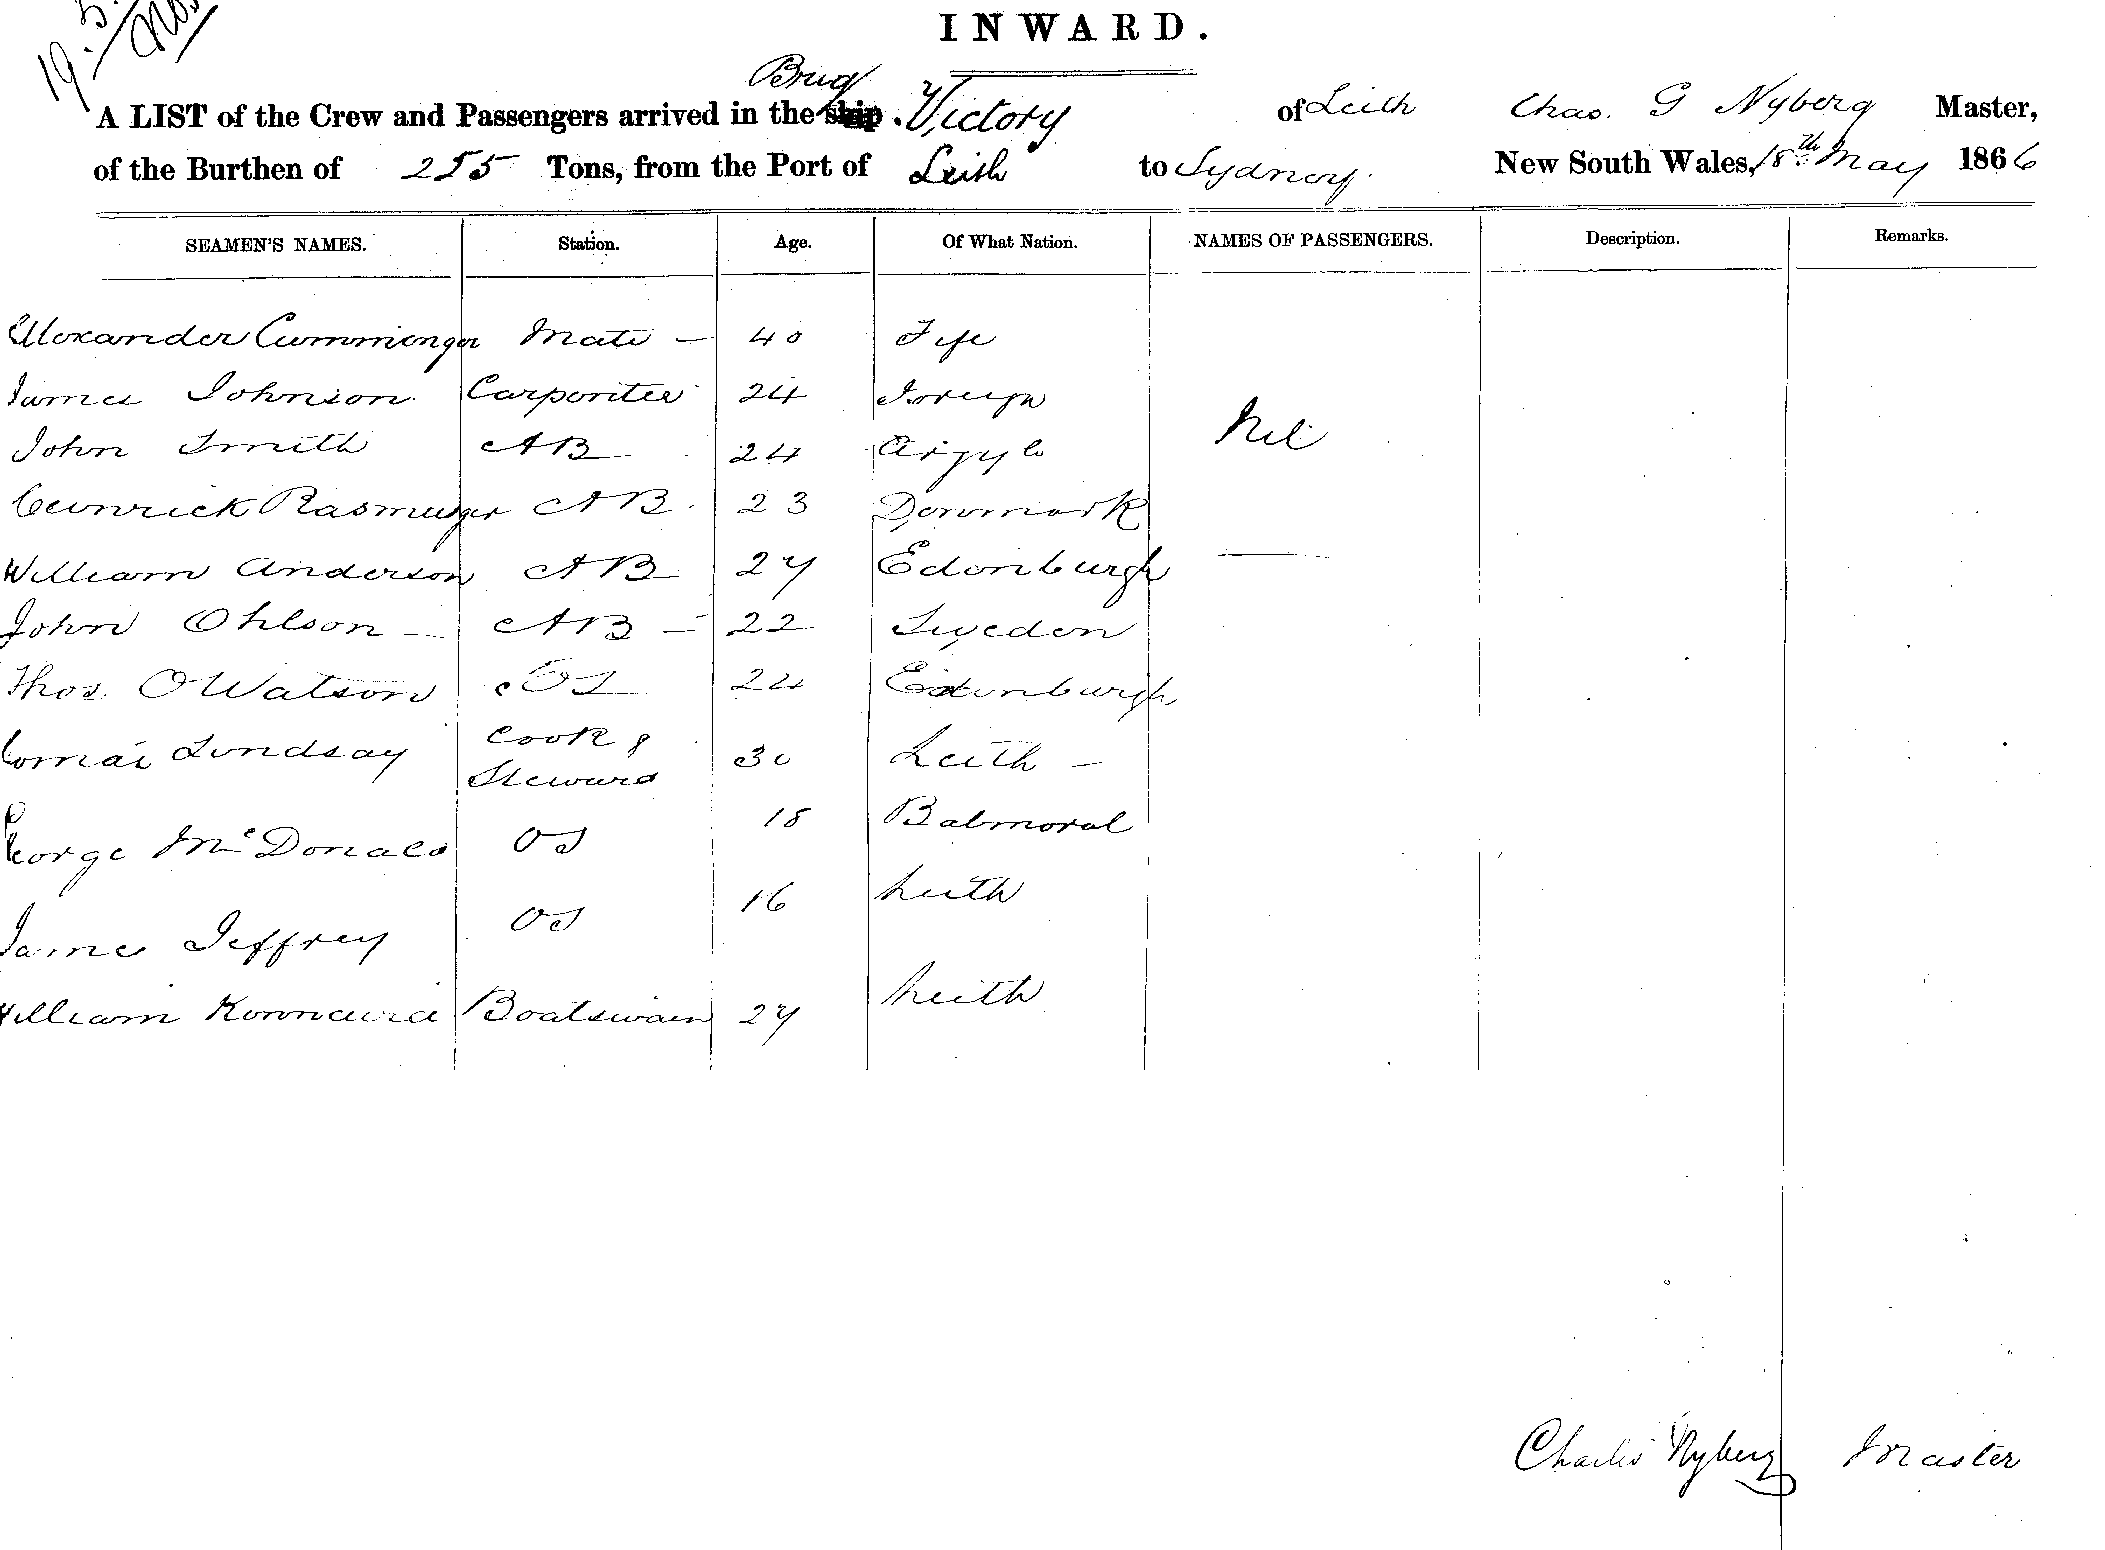 19.5.
INWARD.
Brig
A LIST of the Crew and Passengers arrived in the ship Victory of Leith Chas. G Nyberg Master,
of the Burthen of 255 Tons, from the Port of Leith to Sydney. New South Wales, 18th May 1866
SEAMEN'S NAMES. Station. Age. Of What Nation. NAMES OF PASSENGERS. Description. Remarks.
Alexander Mate 40 Fife
James Johnson Carpenter 24 Foreign
Nil
John Smith AB 24 Argyle
AB 23 Denmark
William Anderson AB 27 Edenburgh
John Ohlson AB 22 Sweden
Thos. O Watson OS 24 Edenburgh
Lindsay Cook & Steward 30 Leith
George McDonald OS 18 Balmoral
James Jeffrey OS 16 Leith
William Boatswain 27 Leith
Charles Nyberg Master